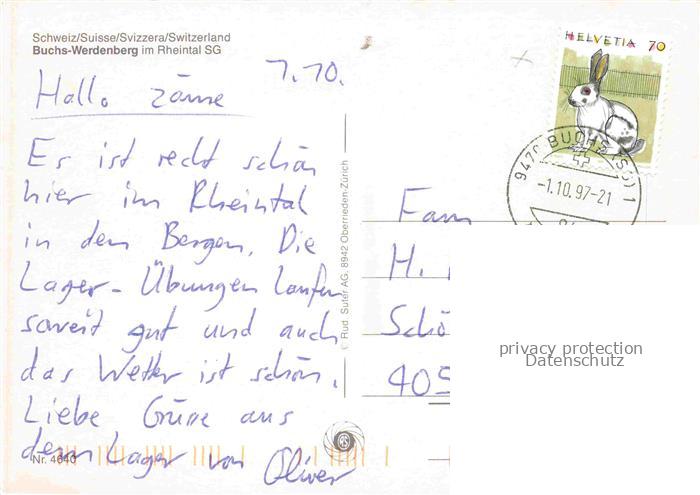 Schweiz/Suisse/Svizzera/Switzerland
Buchs-Werdenberg im Rheintal SG
1.10.
Hallo zäme
Es ist recht schön
hier im Rheintal
in den Bergen. Die
Lager-Übungen laufen
soweit gut und auch
das Wetter ist schön.
Liebe Grüsse aus
dem Lager von Oliver
Nr. 4640
© Rud. Suter AG, 8942 Oberrieden-Zürich
HELVETIA 70
9470 BUCHS (SG) 1
-1.10.97-21
Fam
H.
Schö
405
privacy protection
Datenschutz